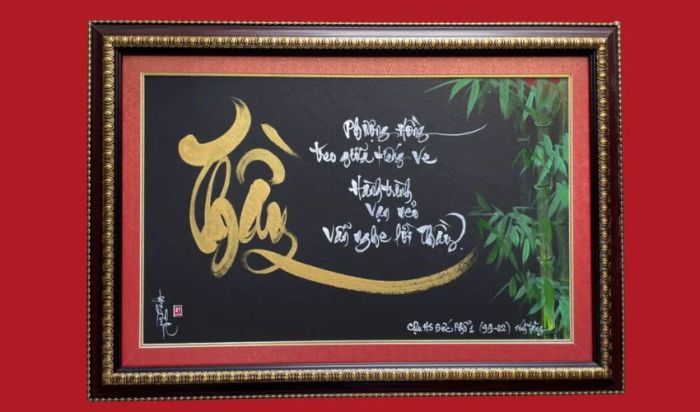 Thầy
Phượng Hồng
treo giữa tiếng ve
Hành trình
vạn nẻo
vẫn nghe lời Thầy
Cựu HS Đức Phổ 1 (99-02)